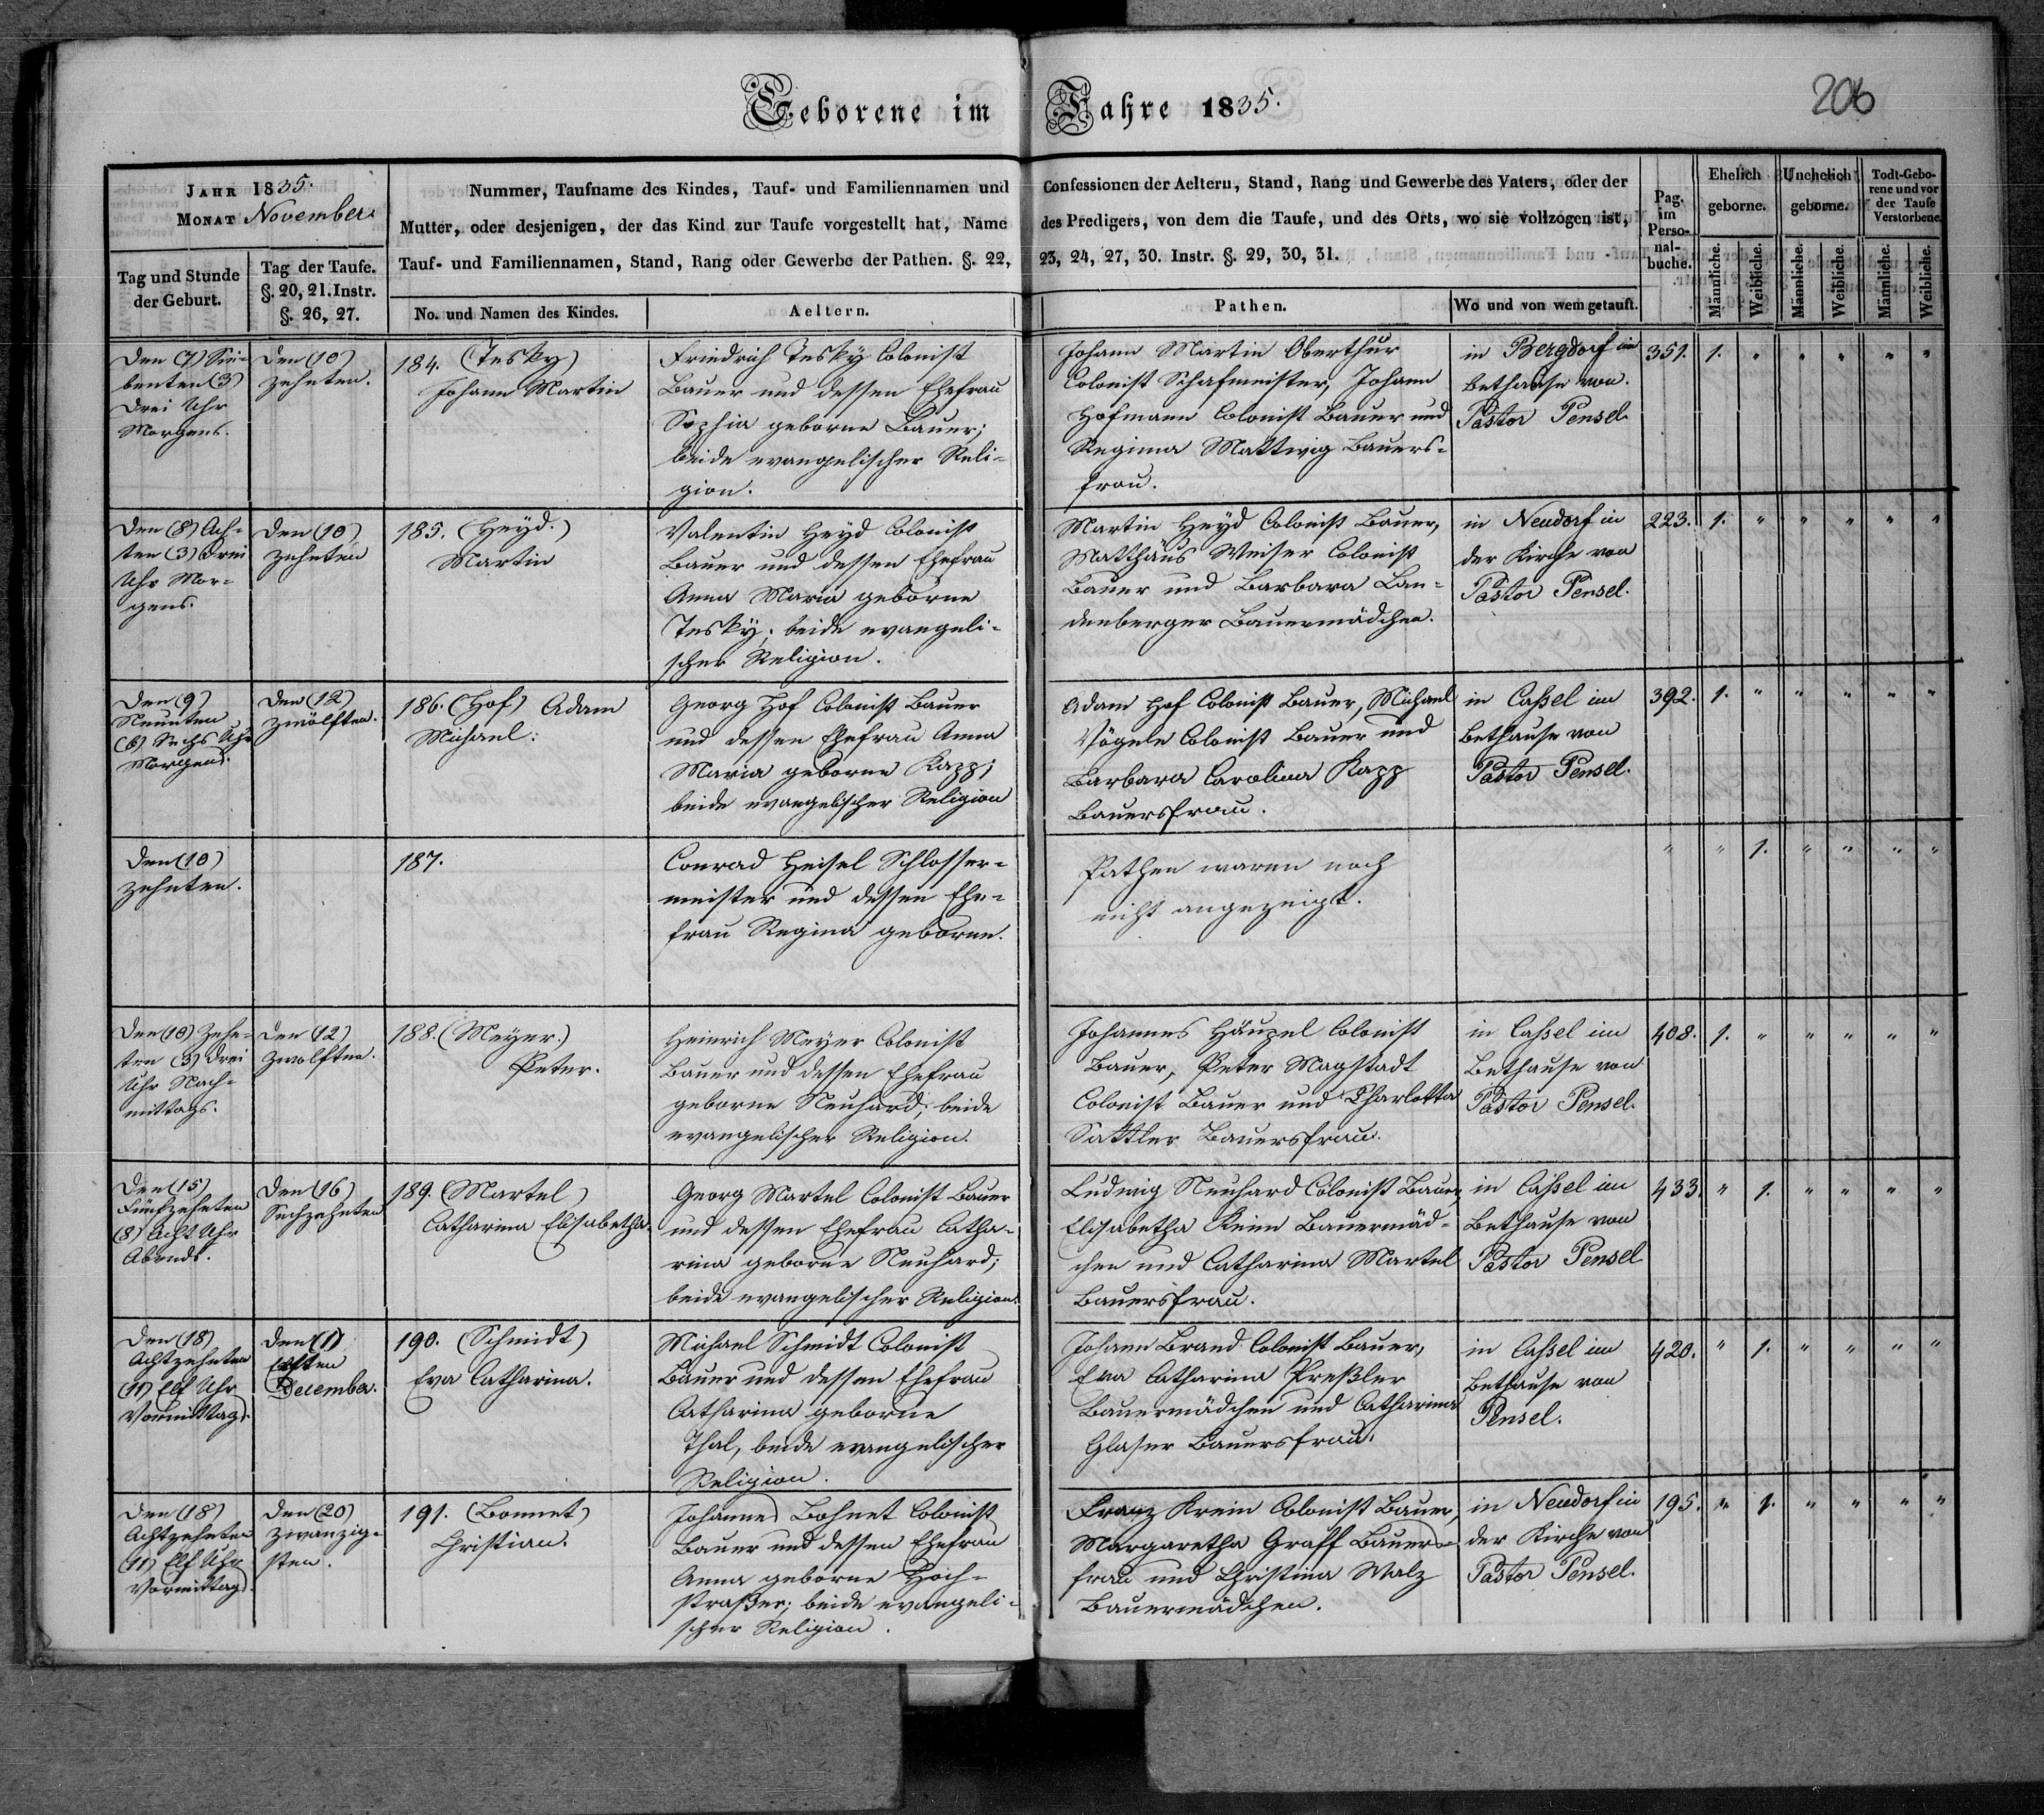 Geborene im Jahre 1835.
206
Jahr 1835.
Monat November.
Tag und Stunde
der Geburt.
Tag der Taufe.
§. 20, 21. Instr.
§. 26, 27.
Nummer, Taufname des Kindes, Tauf- und Familiennamen und Confessionen der Aeltern, Stand, Rang und Gewerbe des Vaters, oder der
Mutter, oder desjenigen, der das Kind zur Taufe vorgestellt hat, Name des Predigers, von dem die Taufe, und des Orts, wo sie vollzogen ist,
Tauf- und Familiennamen, Stand, Rang oder Gewerbe der Pathen. §. 22, 23, 24, 27, 30. Instr. §. 29, 30, 31.
No. und Namen des Kindes.
Aeltern.
Pathen.
Wo und von wem getauft.
Pag.
im
Perso-
nal-
buche.
Ehelich
geborne.
Unehelich
geborne.
Todt-Gebo-
rene und vor
der Taufe
Verstorbene.
Männliche.
Weibliche.
Männliche.
Weibliche.
Männliche.
Weibliche.
Den (7) Sie-
benten (3)
Drei Uhr
Morgens.
Den (10)
zehnten.
184. (Tesky)
Johann Martin
Friedrich Tesky Colonist
Bauer und dessen Ehefrau
Sophia geborne Bauer;
beide evangelischer Reli-
gion.
Johann Martin Oberthür
Colonist Schafmeister, Johann
Hofmann Colonist Bauer und
Regina Mattwig Bauers-
frau.
in Bergdorf im
Bethause von
Pastor Pensel.
351. 1. " " " " "
Den (8) Ach-
ten (3) Drei
Uhr Mor-
gens.
Den (10)
zehnten
185. (Heyd.)
Martin
Valentin Heyd Colonist
Bauer und dessen Ehefrau
Anna Maria geborne
Tesky; beide evangeli-
scher Religion.
Martin Heyd Colonist Bauer,
Matthäus Weiser Colonist
Bauer und Barbara Lan-
denberger Bauermädchen.
in Neudorf in
der Kirche von
Pastor Pensel.
223. 1. " " " " "
Den (9)
Neunten
(6) Sechs Uhr
Morgens.
Den (12)
zwölften.
186. (Hof) Adam
Michael:
Georg Hof Colonist Bauer
und dessen Ehefrau Anna
Maria geborne Kapp;
beide evangelischer Religion
Adam Hof Colonist Bauer, Michael
Vögele Colonist Bauer und
Barbara Carolina Kapp
Bauersfrau.
in Cassel im
Bethause von
Pastor Pensel.
392. 1. " " " " "
Den (10)
zehnten.
187.
Conrad Heisel Schlosser-
meister und dessen Ehe-
frau Regina geborne.
Pathen waren noch
nicht angezeigt.
" " 1. " " " "
Den (10) Zehn-
ten (3) Drei
Uhr Nach-
mittags.
Den (12)
Zwölften.
188. (Meyer.)
Peter.
Heinrich Meyer Colonist
Bauer und dessen Ehefrau
geborne Neuhard; beide
evangelischer Religion.
Johannes Häuzel Colonist
Bauer, Peter Magstadt
Colonist Bauer und Charlotta
Sattler Bauersfrau.
in Cassel im
Bethause von
Pastor Pensel.
408. 1. " " " " "
Den (15)
Fünfzehnten
(8) Acht Uhr
Abends.
Den (16)
Sechzehnten
189. (Martel)
Catharina Elisabetha.
Georg Martel Colonist Bauer
und dessen Ehefrau Catha-
rina geborne Neuhard;
beide evangelischer Religion.
Ludwig Neuhard Colonist Bauer,
Elisabetha Keim Bauermäd-
chen und Catharina Martel
Bauersfrau.
in Cassel im
Bethause von
Pastor Pensel
433. " 1. " " " "
Den (18)
Achtzehnten
(11) Elf Uhr
Vormittags.
Den (1)
Ersten
December.
190. (Schmidt)
Eva Catharina.
Michael Schmidt Colonist
Bauer und dessen Ehefrau
Catharina geborne
Thal, beide evangelischer
Religion.
Johann Brand Colonist Bauer,
Eva Catharina Preßler
Bauermädchen und Catharina
Glaser Bauersfrau.
in Cassel im
Bethause von
Pensel.
420. " 1. " " " "
Den (18)
Achtzehnten
(11) Elf Uhr
Vormittags.
Den (20)
zwanzig-
sten.
191. (Bonnet)
Christian.
Johannes Bohnet Colonist
Bauer und dessen Ehefrau
Anna geborne Hoch-
straßer; beide evangeli-
scher Religion.
Franz Krein Colonist Bauer,
Margaretha Graff Bauers-
frau und Christina Walz
Bauermädchen.
in Neudorf in
der Kirche von
Pastor Pensel.
195. " 1. " " " "